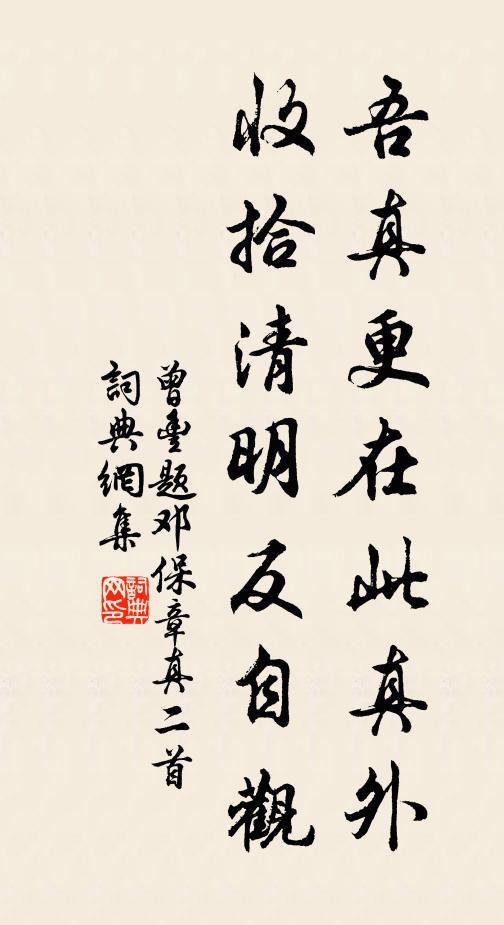 吾真更在此真外
收拾清明反自觀
曾豊題邓保章真二首
詞典網集
詞典网印